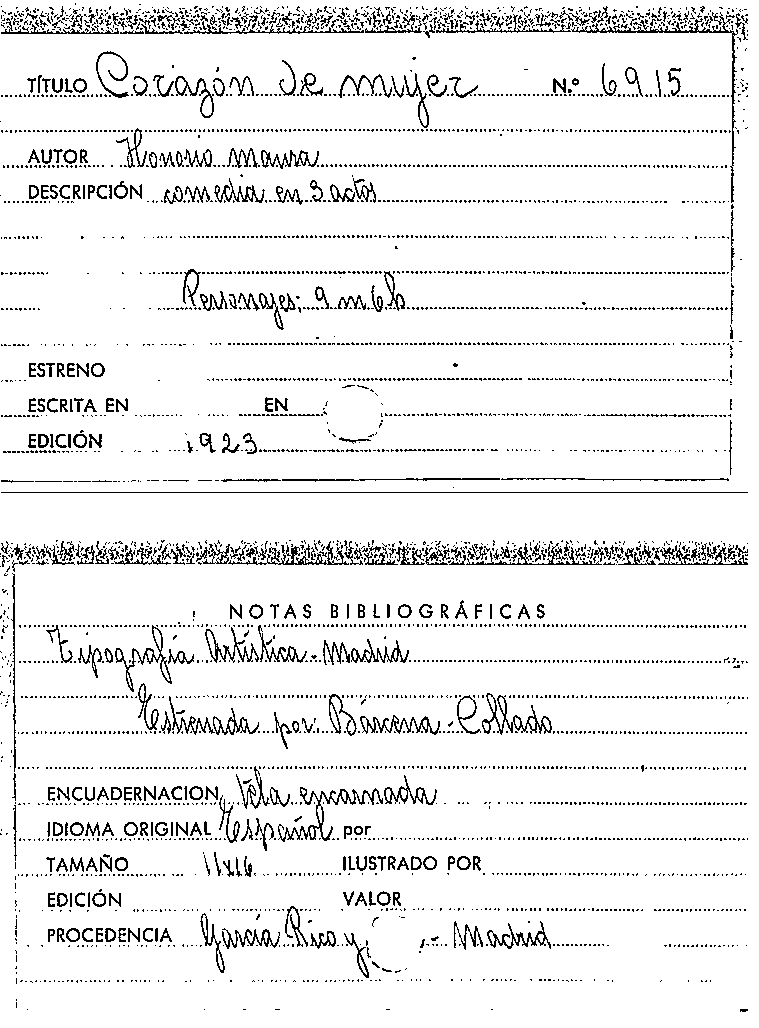 TÍTULO Corazón de mujer N.º 6915
AUTOR Honorio Maura
DESCRIPCIÓN comedia en 3 actos
Personajes: 9 m 6 h
ESTRENO
ESCRITA EN EN
EDICIÓN 1923
NOTAS BIBLIOGRÁFICAS
Tipografía Artística - Madrid
Estrenada por: Bárcena - Collado
ENCUADERNACION Tela encarnada
IDIOMA ORIGINAL Español por
TAMAÑO 11x16 ILUSTRADO POR
EDICIÓN VALOR
PROCEDENCIA García Rico y - Madrid